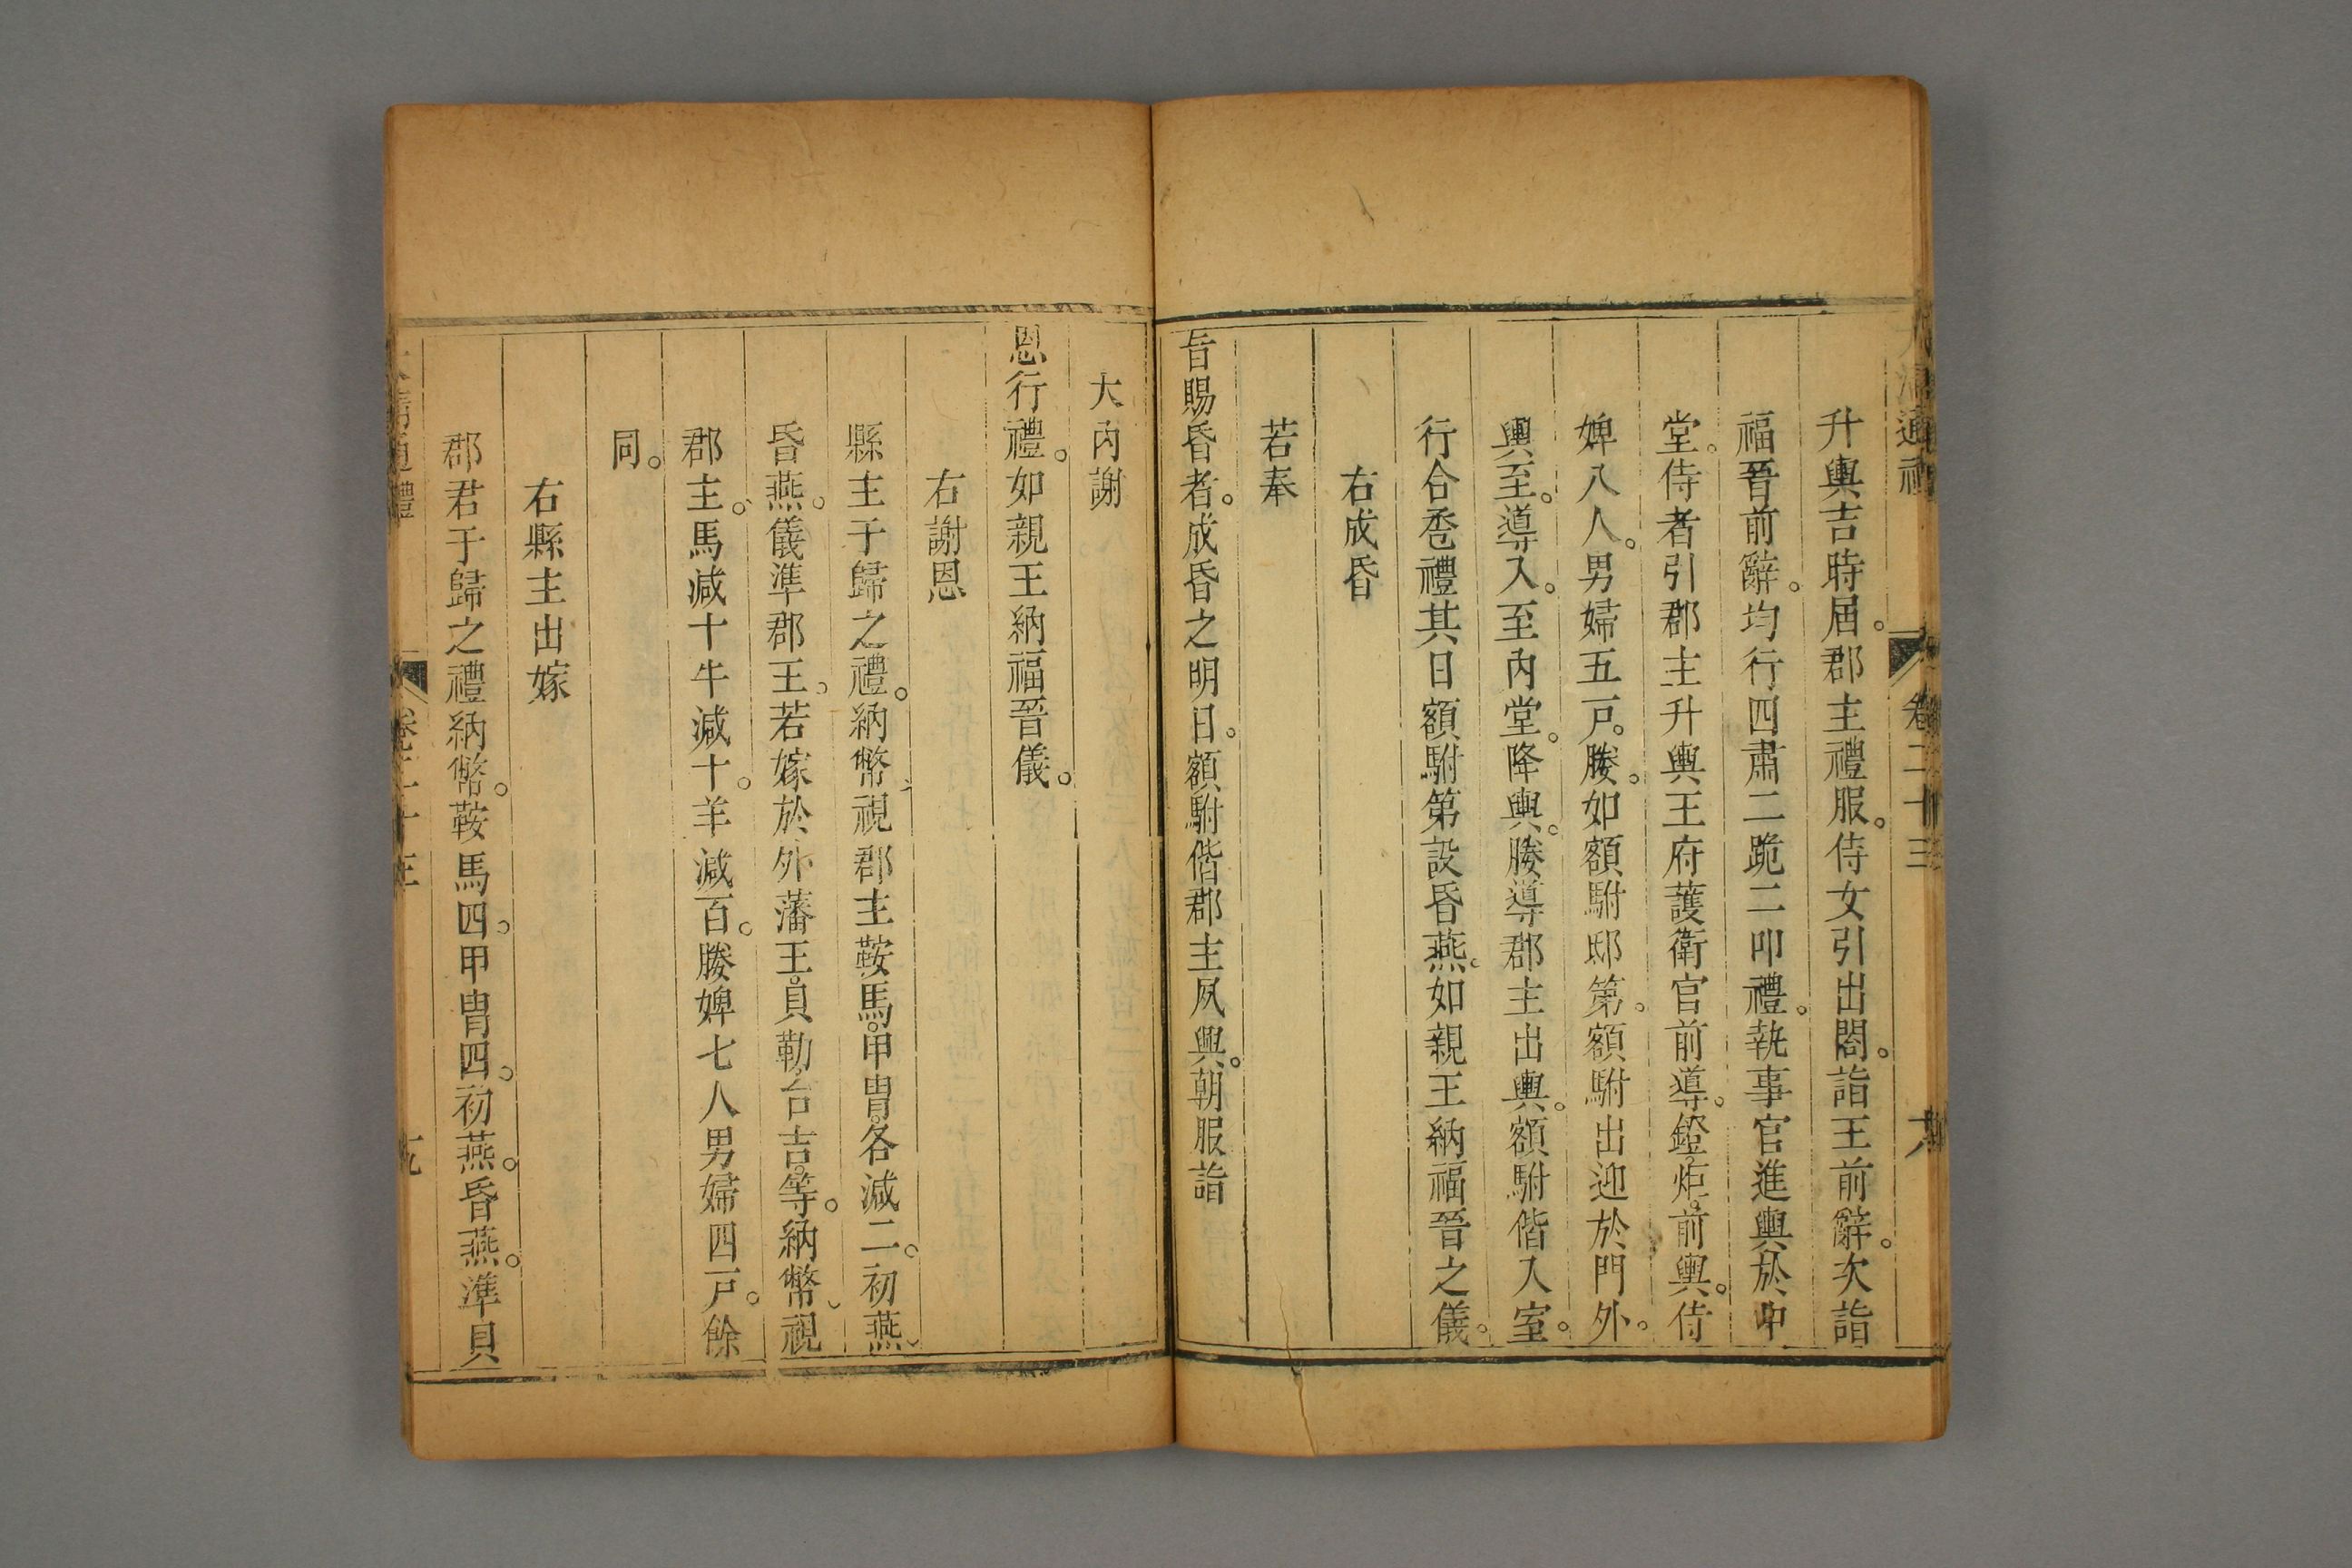 大清通禮 卷二十三
升輿吉時屆。郡主禮服。侍女引出閤。詣王前辭。次詣
福晉前辭。均行四肅二跪二叩禮。執事官進輿於中
堂。侍者引郡主升輿王府護衛官前導。鐙。炬。前輿。侍
婢八人。男婦五戶。媵。如額駙邸第。額駙出迎於門外。
輿至。導入。至內堂。降輿。媵導郡主出輿。額駙偕入室。
行合卺禮其日額駙第設昏燕。如親王納福晉之儀。
右成昏
若奉
旨賜昏者。成昏之明日。額駙偕郡主夙興。朝服詣
大內謝
恩行禮。如親王納福晉儀。
右謝恩
縣主于歸之禮。納幣、視郡主鞍馬。甲冑。各減二。初燕、
昏燕。儀準郡王。若嫁於外藩王。貝勒。台吉。等。納幣、視
郡主。馬減十牛減十。羊減百。媵婢七人男婦四戶。餘
同。
右縣主出嫁
郡君于歸之禮納幣。鞍馬四。甲冑四。初燕。昏燕。準貝
大清通禮 卷二十三